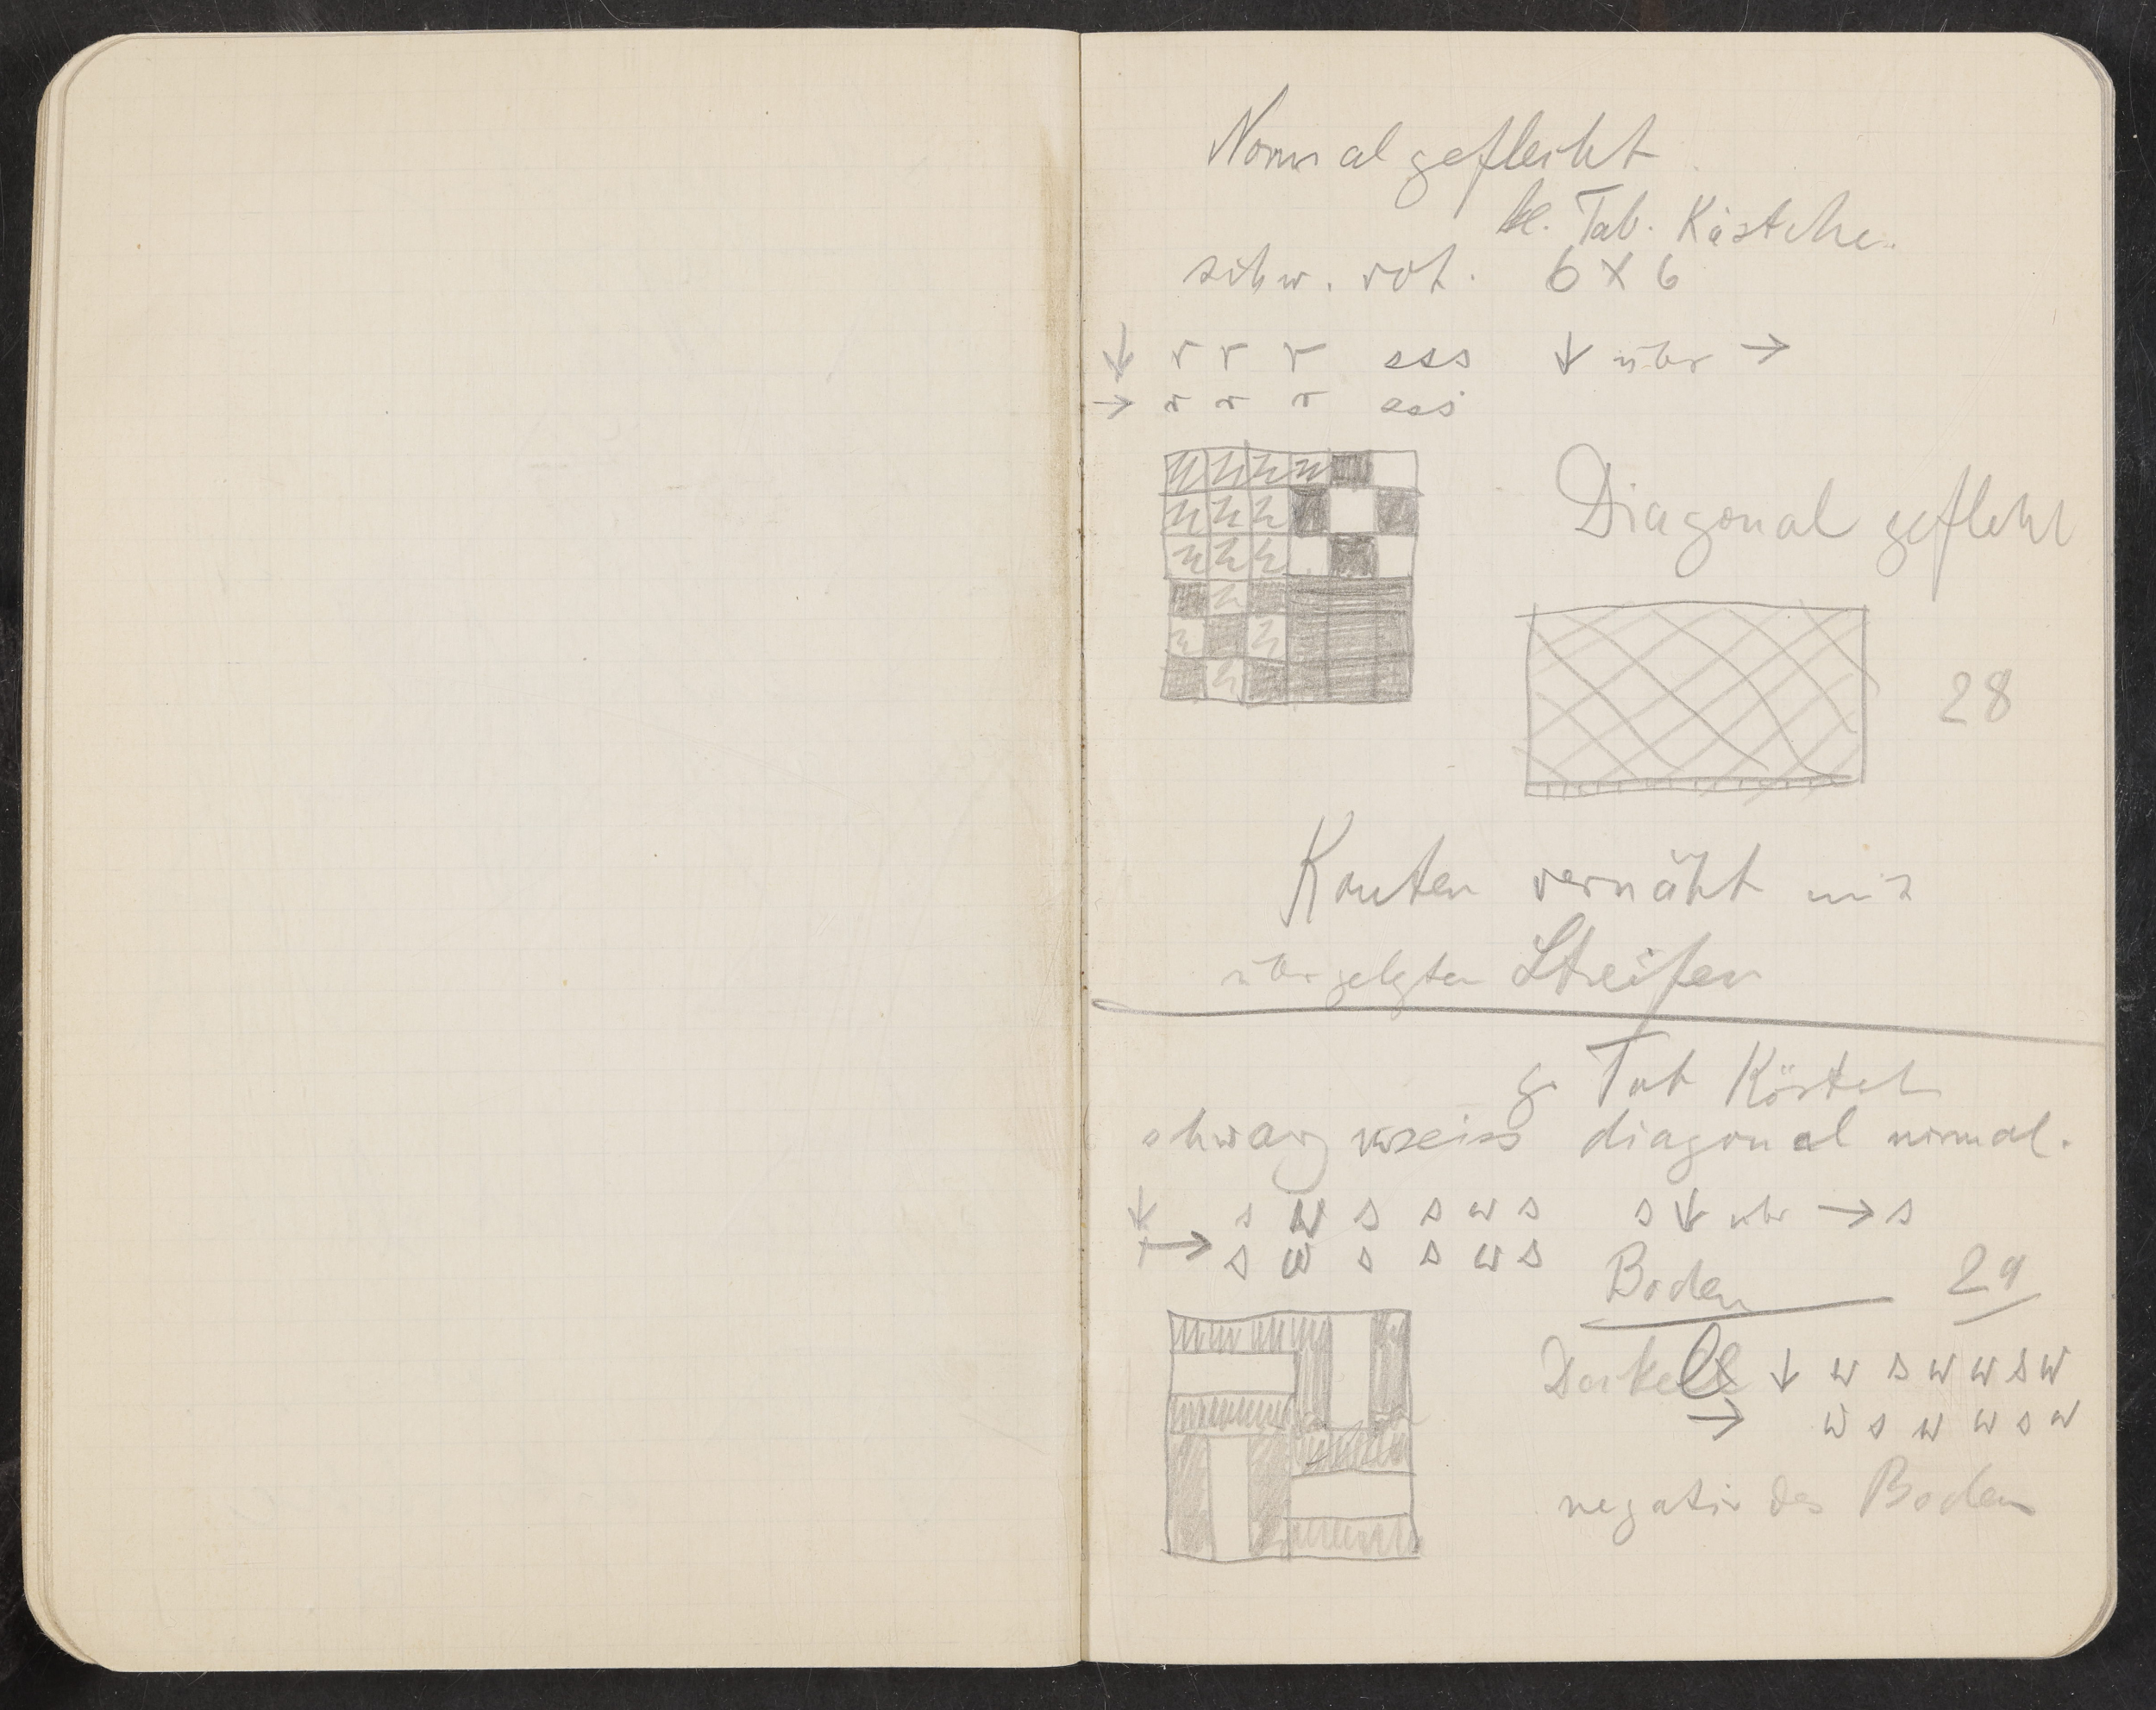 Normal geflecht
kl. Tab. Kästche.
schw. rot. 6 X 6
↓ r r r sss ↓ über →
→ r r r sss
Diagonal geflecht
28
Kanten vernäht mit
übergelegten Streifen
g. Tab Kästch
schwarz weiss diagonal normal.
↓ s w s s w s s ↓ über → s
→ s w s s w s
Boden 29
Deckel ↓ w s w w s w
→ w s w w s w
negativ des Boden